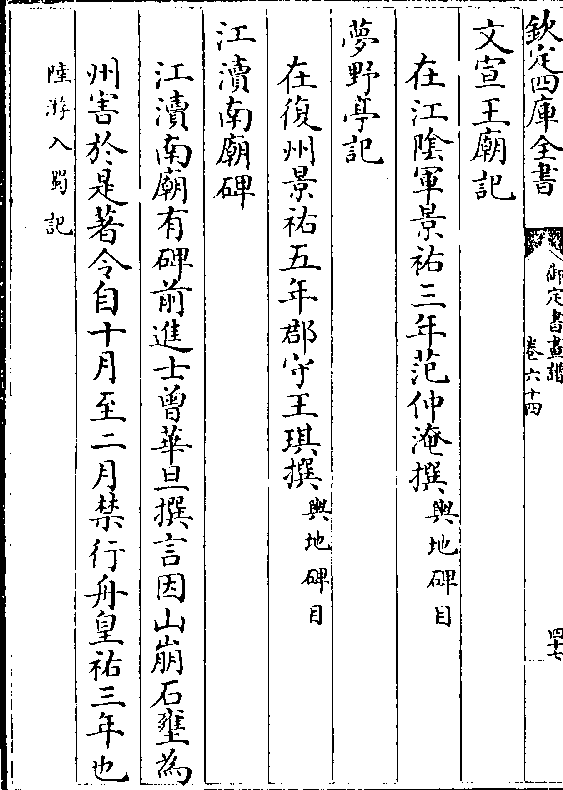 欽定四庫全書
御定書畫譜
卷六十四
四十七
文宣王廟記
在江陰軍景祐三年范仲淹撰輿地碑目
夢野亭記
在復州景祐五年郡守王琪撰輿地碑目
江瀆南廟碑
江瀆南廟有碑前進士曾華旦撰言因山崩石壅為
州害於是著令自十月至二月禁行舟皇祐三年也
陸游入蜀記